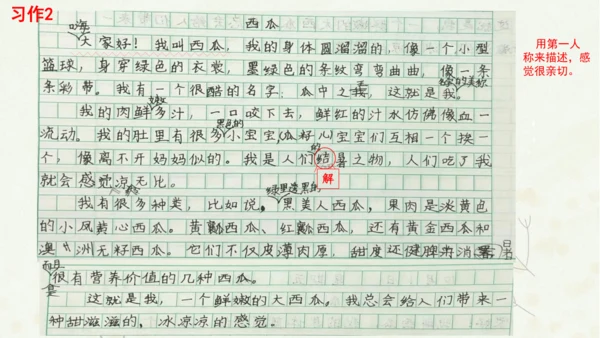 习作2
西瓜
嗨
大家好！我叫西瓜，我的身体圆溜溜的，像一个小型
篮球，身穿绿色的衣裳，墨绿色的条纹弯弯曲曲，像一条
条彩带。我有一个很酷的名字：瓜中之王，这就是我。
我的肉鲜嫩多汁，一口咬下去，鲜红的汁水仿佛像血一
流动。我的肚里有很多黑色的小宝宝（瓜籽儿）宝宝们互相一个挨一
个，像离不开妈妈似的。我是人们的结暑之物，人们吃了我
解
就会感觉凉无比。
我有很多种类，比如说，黑美人西瓜，果肉是淡黄色
的小凤黄心西瓜。黄瓤西瓜、红瓤西瓜，还有黄金西瓜和
澳洲无籽西瓜。它们不仅皮薄肉厚，甜度还健脾消暑
很有营养价值的几种西瓜。
这就是我，一个鲜嫩的大西瓜，我总会给人们带来一
种甜滋滋的，冰凉凉的感觉。
用第一人
称来描述，感
觉很亲切。